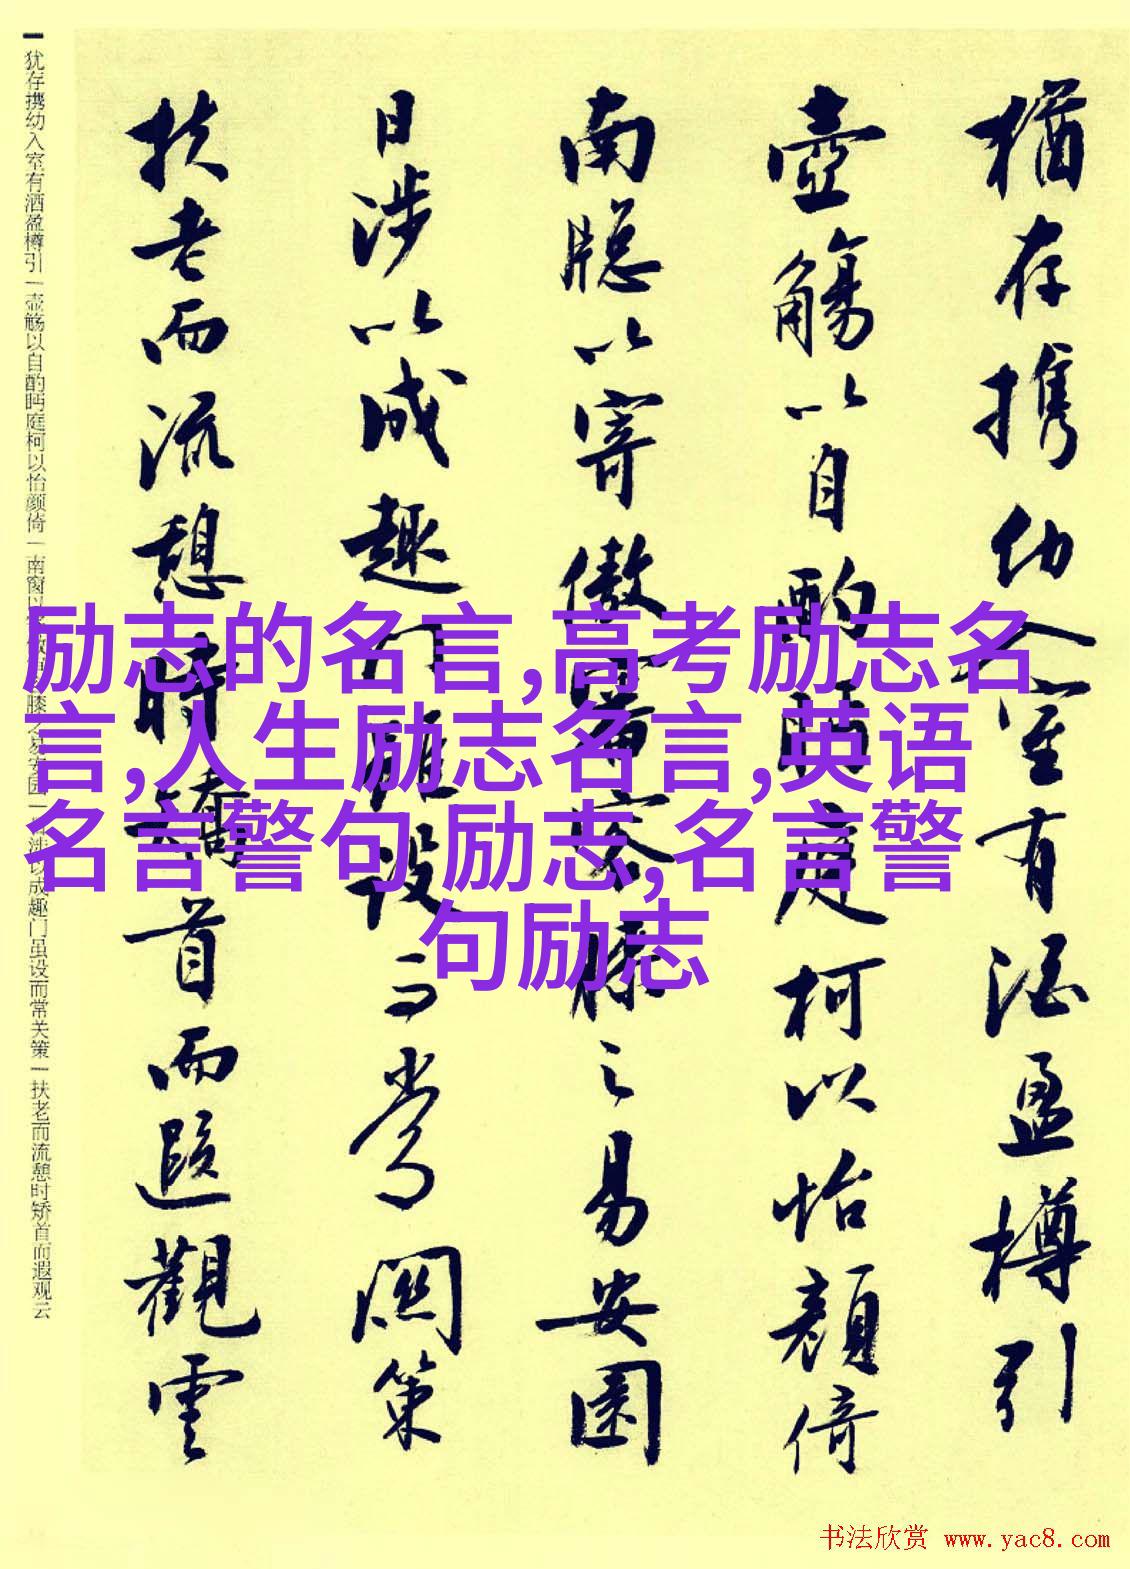 猶存携幼入室有酒盈樽引
壺觴以自酌眄庭柯以怡顏倚
南牕以寄傲審容膝之易安園
日涉以成趣门雖设而常関策
扶老而流憩時矯首而遐觀雲
犹存携幼入室有酒盈樽引|壶觞以自酌眄庭柯以怡颜倚|南窗以寄傲审容膝之易安园|日涉以成趣门虽设而常关策|扶老而流憩时矫首而遐观云
励志的名言,高考励志名
言,人生励志名言,英语
名言警句 励志,名言警
句励志
书法欣赏 www.yac8.com